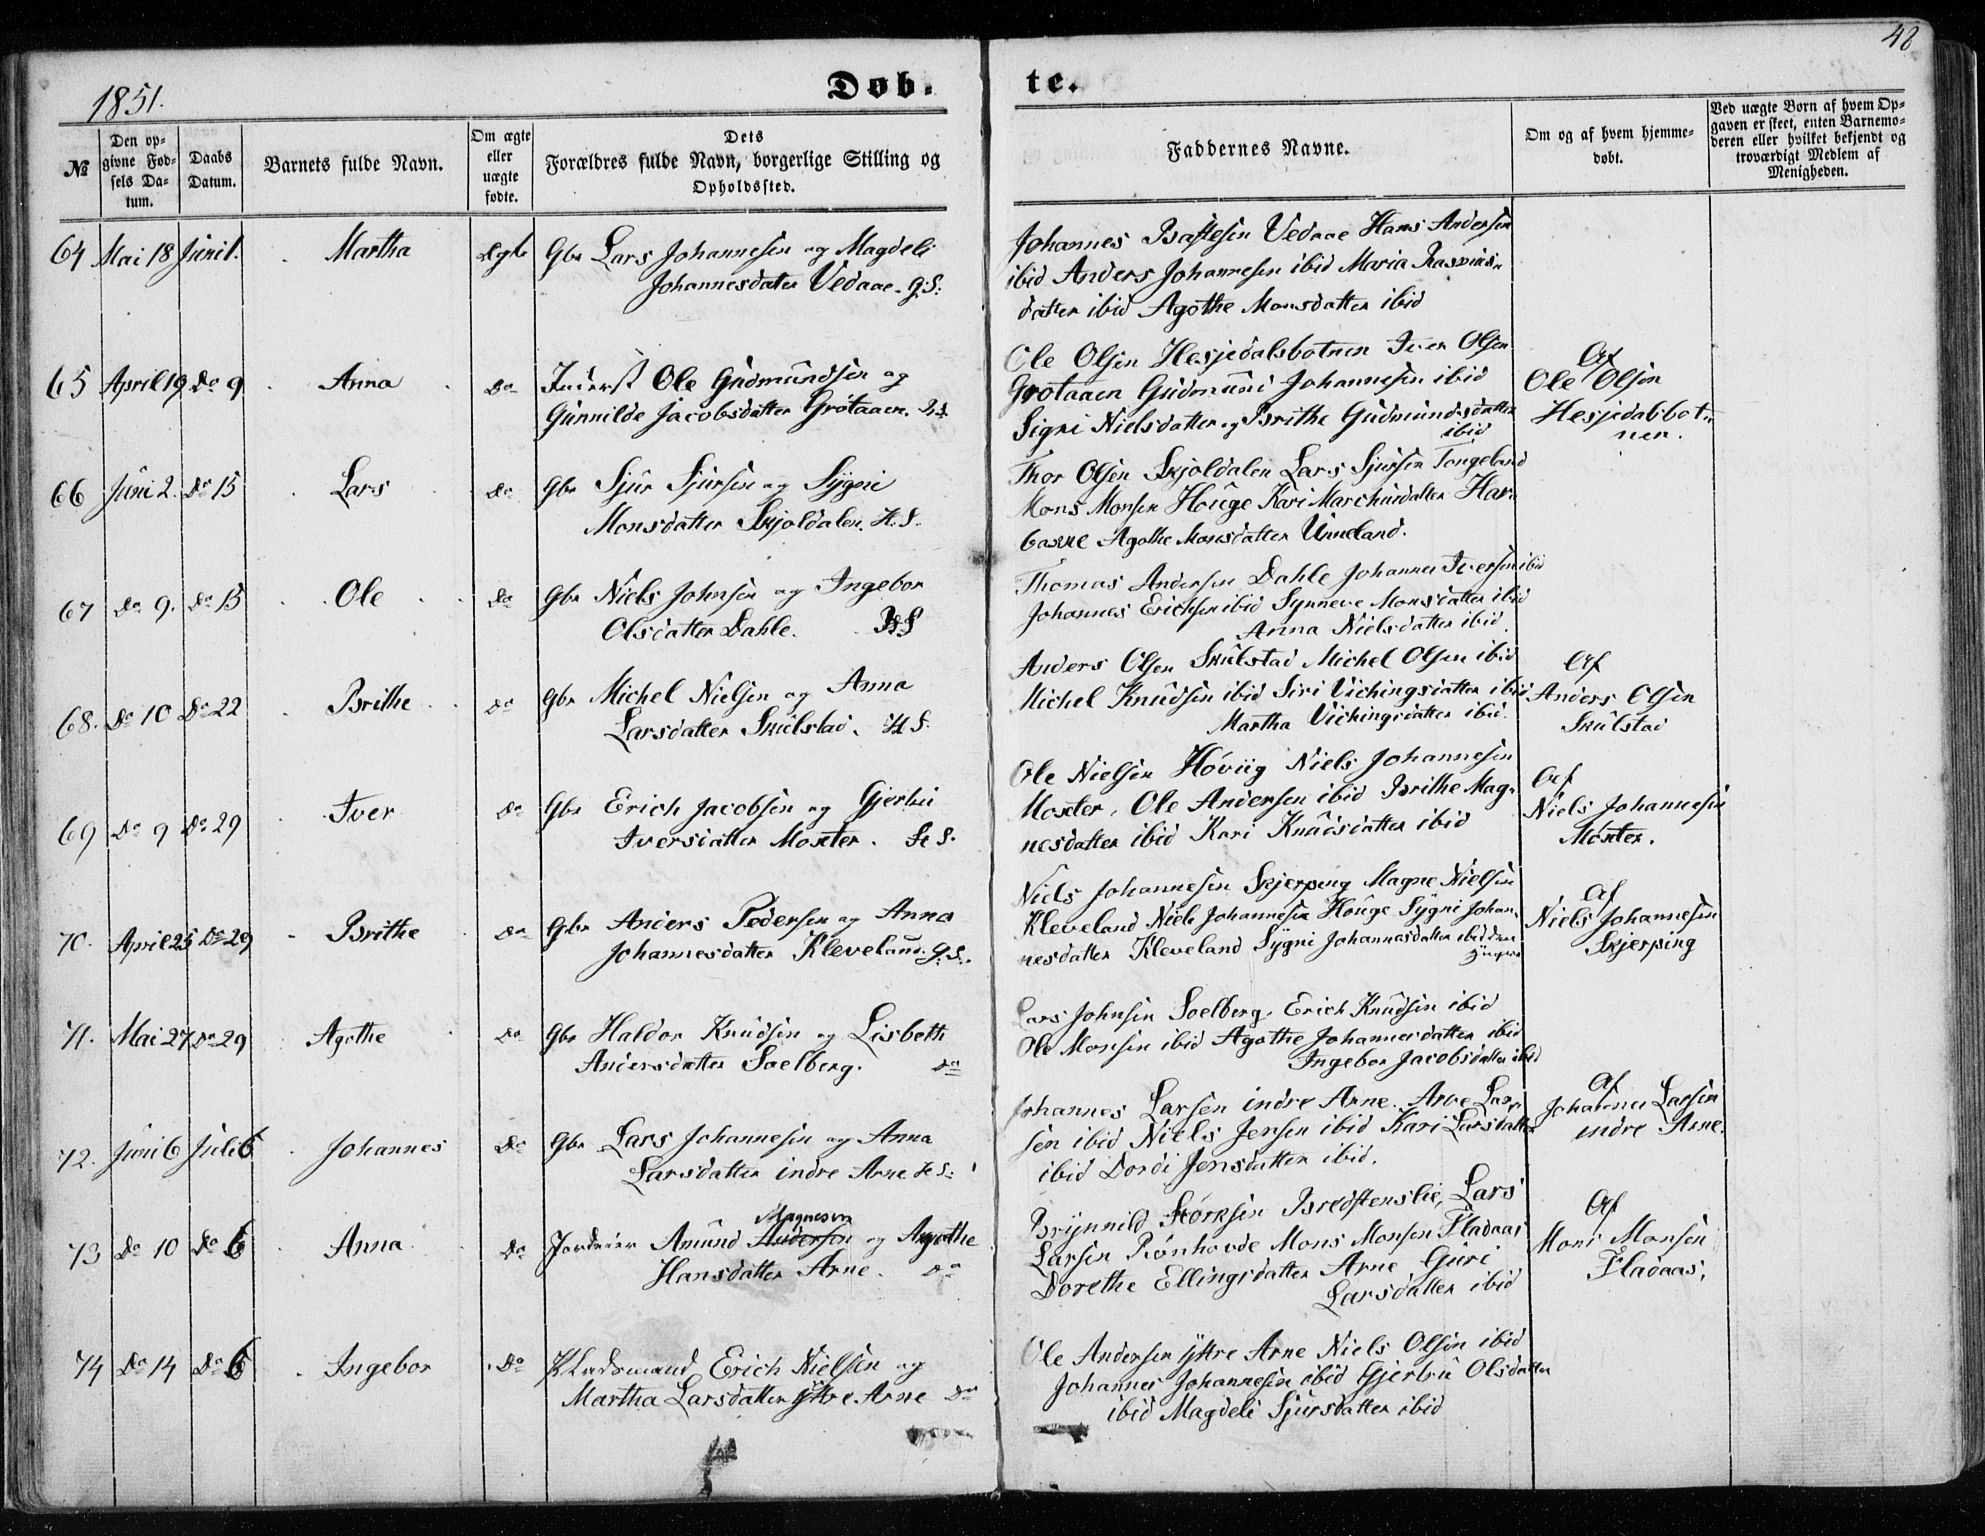 48
1851.
Døb- te.
№
Den opgivne Fødsels Datum.
Daabs Datum.
Barnets fulde Navn.
Om ægte eller uægte fødte.
Dets Forældres fulde Navn, borgerlige Stilling og Opholdssted.
Faddernes Navne.
Om og af hvem hjemmedøbt.
Ved uægte Børn af hvem Opgaven er skeet, enten Barnemoderen eller hvilket bekjendt og troværdigt Medlem af Menigheden.
64 Mai 18 Juni 1. Martha Ægte Gbr Lars Johannesen og Magdeli
Johannesdatter Vedaae. G.S.
Johannes Bastesen Vedaae Hans Andersen
ibid Anders Johannesen ibid Maria Rasmus-
datter ibid Agothe Monsdatter ibid
65 April 19 Do 9 Anna Do Inderst Ole Gudmundsen og
Gunnilde Jacobsdatter Grotaaen.
Ole Olsen Hesjedalsbotnen Iver Olsen
Grotaaen Gudmund Johannesen ibid
Sigri Nielsdatter og Brithe Gudmundsdatter
ibid
Af
Ole Olsen
Hesjedalsbot-
nen.
66 Juni 2. Do 15 Lars Do Gbr Sjur Sjursen og Sygni
Monsdatter Skjoldalen. H.S.
Thor Olsen Skjoldalen Lars Sjursen Tangeland
Mons Monsen Houge Kari Marchusdatter Hau-
Agothe Monsdatter Unneland.
67 Do 9. Do 15 Ole Do Gbr Niels Johnsen og Ingebor
Olsdatter Dahle.
Thomas Andersen Dahle Johannes Iversen ibid
Johannes Erichsen ibid Synneve Monsdatter ibid
Anna Nielsdatter ibid.
68. Do 10 Do 22 Brithe Do Gbr Michel Nielsen og Anna
Larsdatter Skulstad. H.S.
Anders Olsen Skulstad Michel Olsen ibid
Michel Knudsen ibid Siri Vichingsdatter ibid
Martha Vichingsdatter ibid.
Af
Anders Olsen
Skulstad
69 Do 9 Do 29 Iver Do Gbr Erich Jacobsen og Gjertru
Iversdatter Moxter. H.S.
Ole Nielsen Høviig Niels Johannesen
Moxter. Ole Andersen ibid Brithe Mag-
nesdatter ibid Kari Knudsdatter ibid
Af
Niels Johannesen
Moxter.
70. April 25 Do 29 Brithe Do Gbr Anders Pedersen og Anna
Johannesdatter Kleveland. G.S.
Niels Johannesen Skjerping Magne Nielsen
Kleveland Niels Johannesen Houge Sygni Johan-
nesdatter Kleveland Sygni Johannesdatter ibid den
yngre
Af
Niels Johannesen
Skjerping
71. Mai 27 Do 29 Agothe Do Gbr Haldor Knudsen og Lisbeth
Andersdatter Soelberg. Do
Lars Johnsen Soelberg. Erich Knudsen ibid
Ole Monsen ibid Agothe Johannesdatter ibid
Ingebor Jacobsdatter ibid
72. Juni 6 Juli 6 Johannes Do Gbr Lars Johannesen og Anna
Larsdatter indre Arne H.S.
Johannes Larsen indre Arne. Arne Lar-
sen ibid Niels Jensen ibid Kari Larsdatter
ibid Dordi Jensdatter ibid.
Af
Johannes Larsen
indre Arne.
73 Do 10 Do 6 Anna Do Jordeier Amund Andersen og Agothe
Magnesen
Hansdatter Arne. Do
Brynnild Størksen Bredstenslie, Lars
Larsen Rønhovde Mons Monsen Fladaas
Dorethe Ellingsdatter Arne Guri
Larsdatter ibid
Af
Mons Monsen
Fladaas,
74 Do 14 Do 6 Ingebor Do Erich Nielsen og
Martha Larsdatter ytre Arne Do
Ole Andersen ytre Arne Niels Olsen ibid
Johannes Johannesen ibid Gjertru Olsdatter
ibid Magdeli Sjursdatter ibid